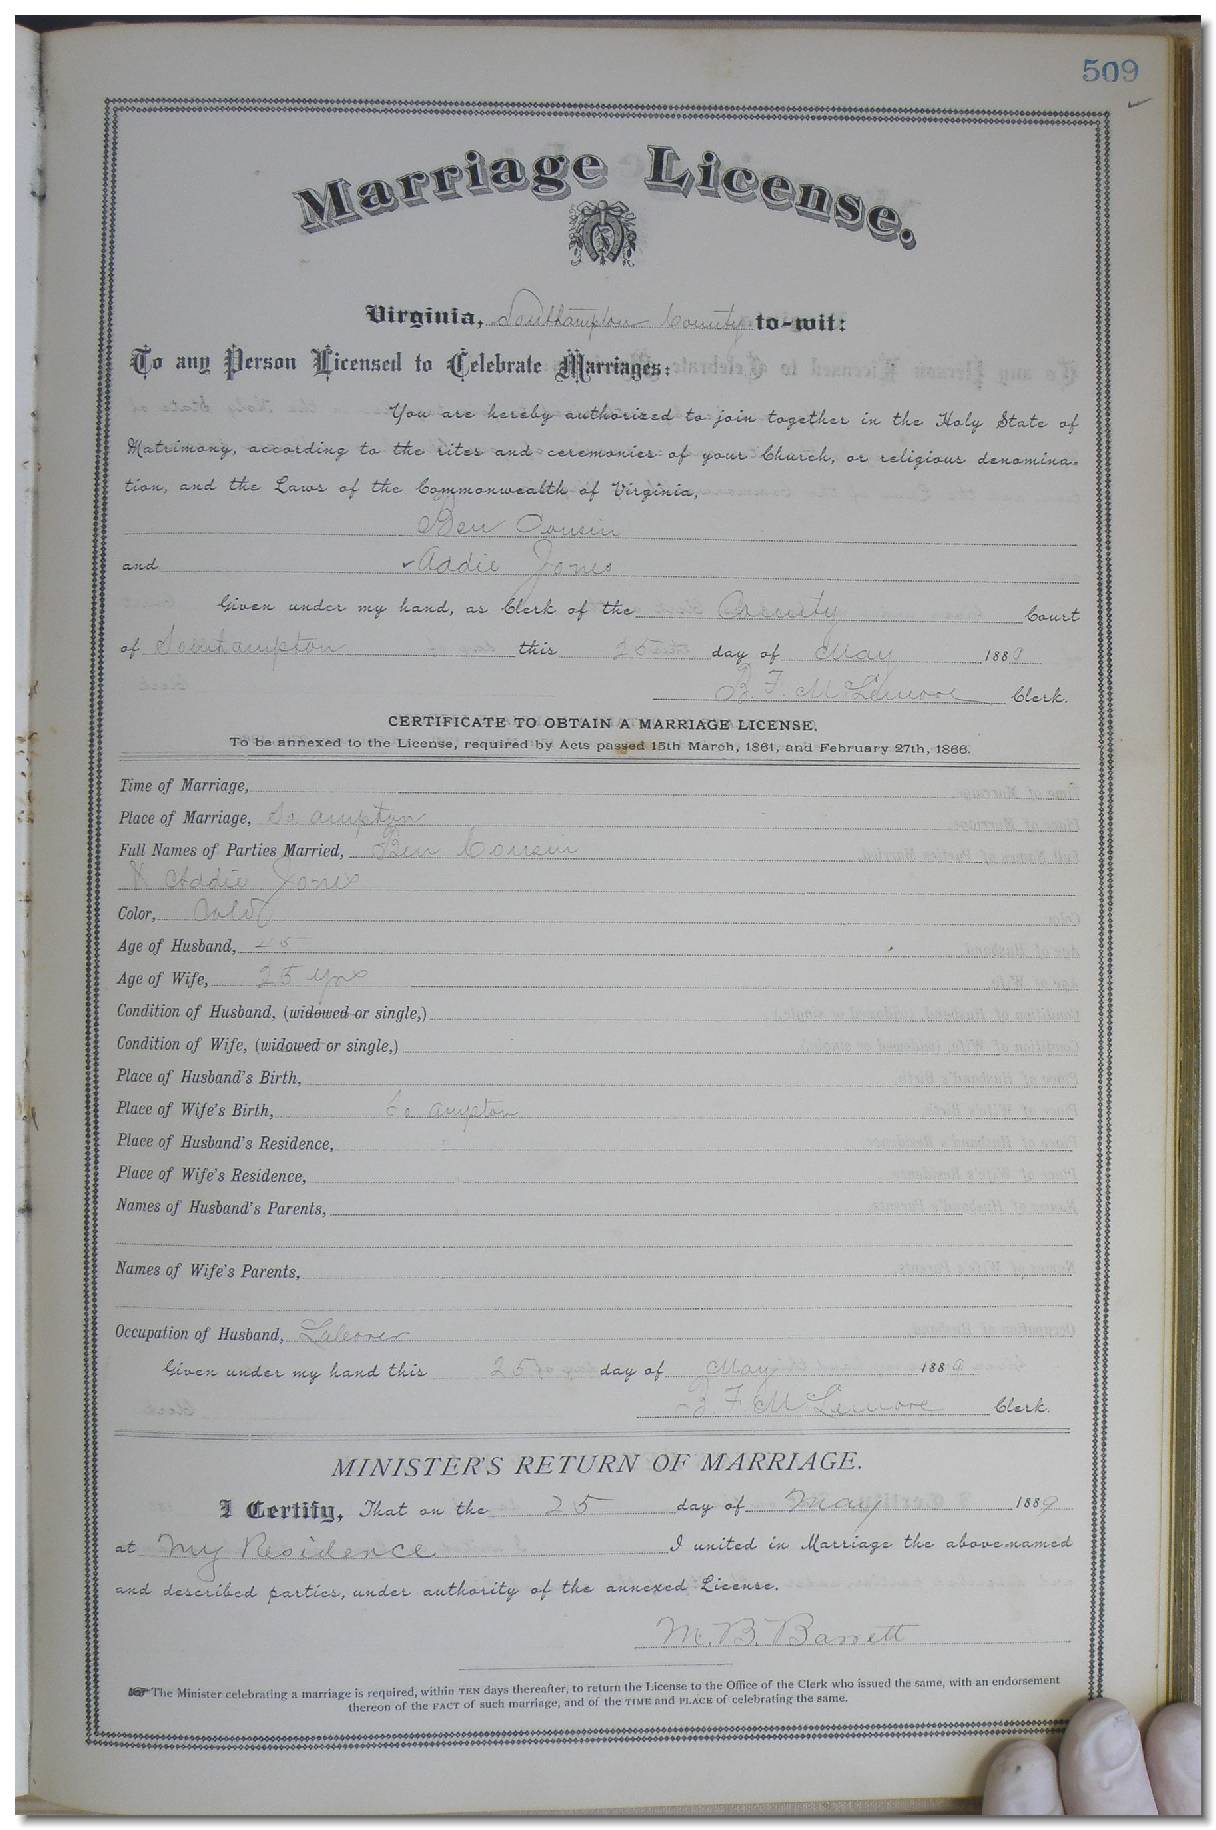 509
Marriage License.
Virginia, Southampton County to-wit:
To any Person Licensed to Celebrate Marriages:
You are hereby authorized to join together in the Holy State of
Matrimony, according to the rites and ceremonies of your Church, or religious denomina-
tion, and the Laws of the Commonwealth of Virginia,
Ben Cousin
and Addie Jones
Given under my hand, as Clerk of the County Court
of Southampton this 25 day of May 1889
B. F. McLemore Clerk.
CERTIFICATE TO OBTAIN A MARRIAGE LICENSE.
To be annexed to the License, required by Acts passed 15th March, 1861, and February 27th, 1866.
Time of Marriage,
Place of Marriage, So ampton
Full Names of Parties Married, Ben Cousin
& Addie Jones
Color, Cold
Age of Husband, 45
Age of Wife, 25 yrs
Condition of Husband, (widowed or single,)
Condition of Wife, (widowed or single,)
Place of Husband's Birth,
Place of Wife's Birth, So ampton
Place of Husband's Residence,
Place of Wife's Residence,
Names of Husband's Parents,
Names of Wife's Parents,
Occupation of Husband, Laborer
Given under my hand this 25 day of May 1889
B F McLemore Clerk.
MINISTER'S RETURN OF MARRIAGE.
I Certify, That on the 25 day of May 1889
at My Residence I united in Marriage the above-named
and described parties, under authority of the annexed License.
M. B. Barrett
The Minister celebrating a marriage is required, within TEN days thereafter, to return the License to the Office of the Clerk who issued the same, with an endorsement
thereon of the FACT of such marriage, and of the TIME and PLACE of celebrating the same.